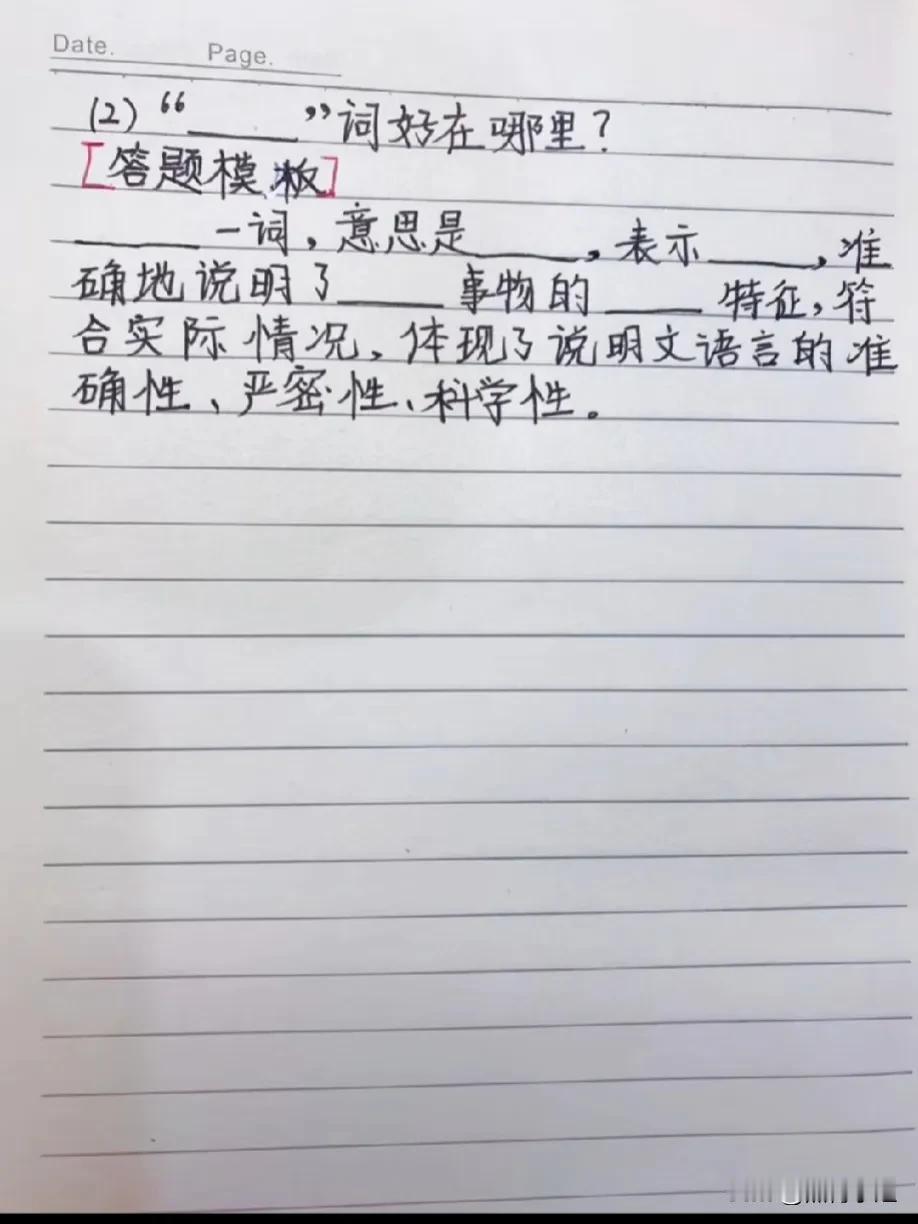 Date.    Page.
(2)“____”词好在哪里?
[答题模板]
____一词,意思是____,表示____,准
确地说明了____事物的____特征,符
合实际情况,体现了说明文语言的准
确性、严密性、科学性。